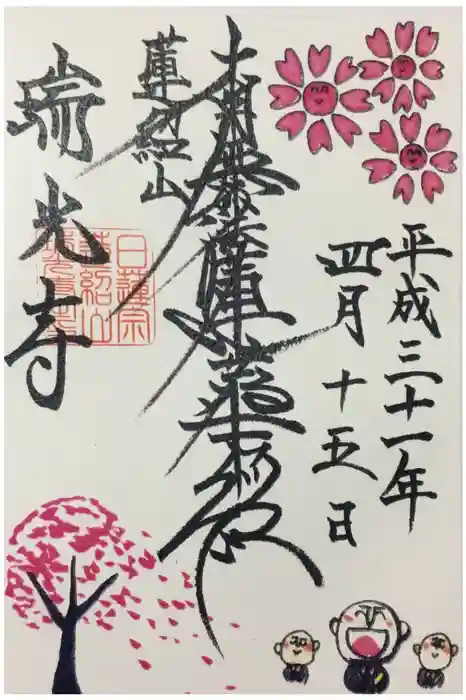 平成三十一年
四月十五日
南無妙法蓮華経
蓮紹山
瑞光寺
日蓮宗
蓮紹山